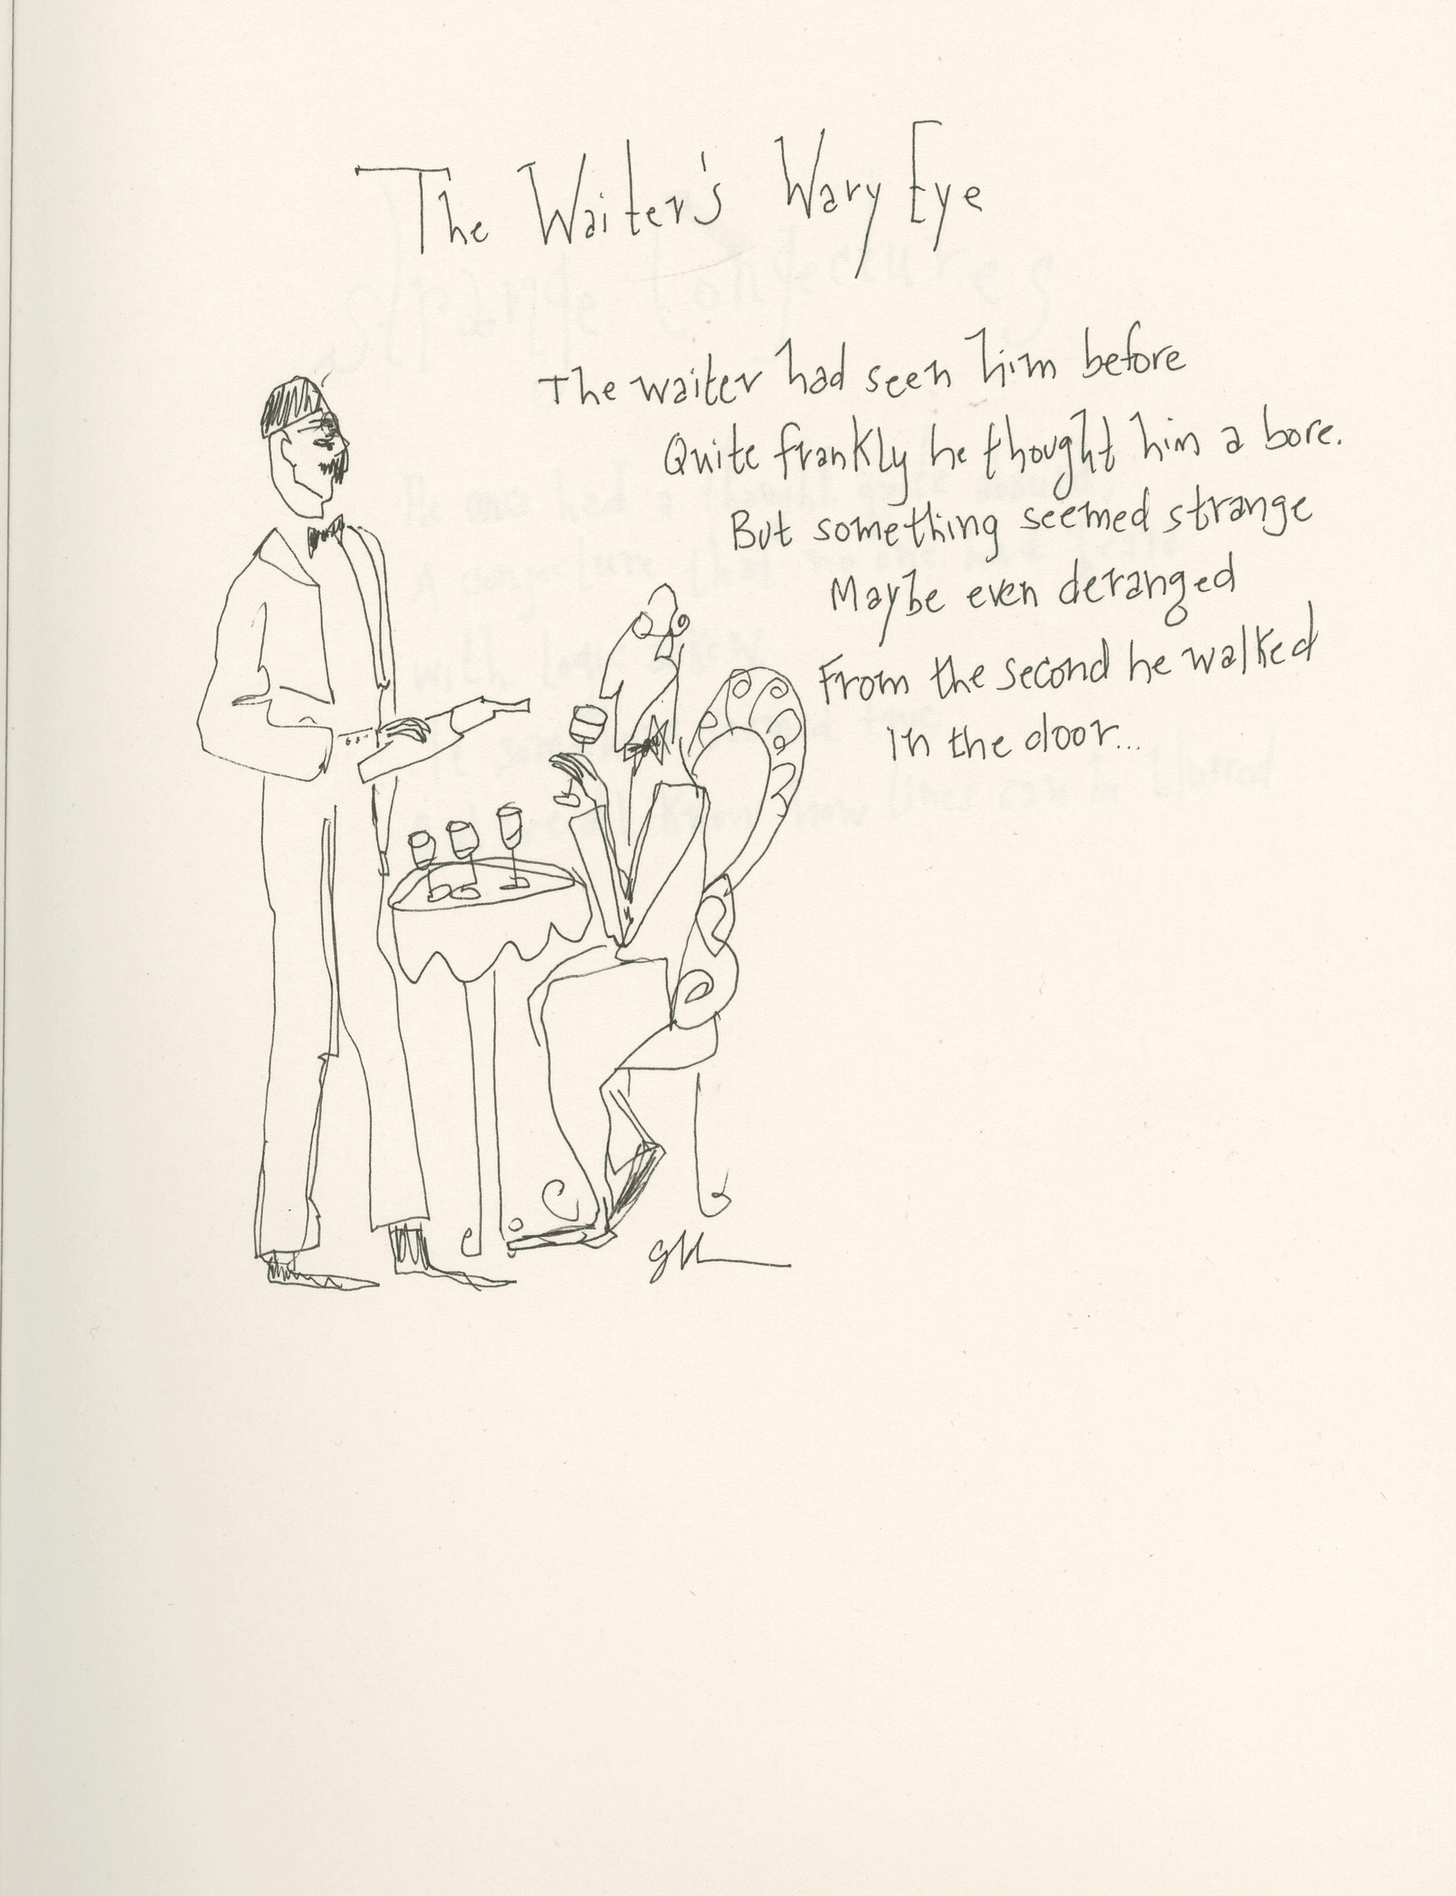 The Waiter's Wary Eye
The waiter had seen him before
Quite frankly he thought him a bore.
But something seemed strange
Maybe even deranged
From the second he walked
in the door...